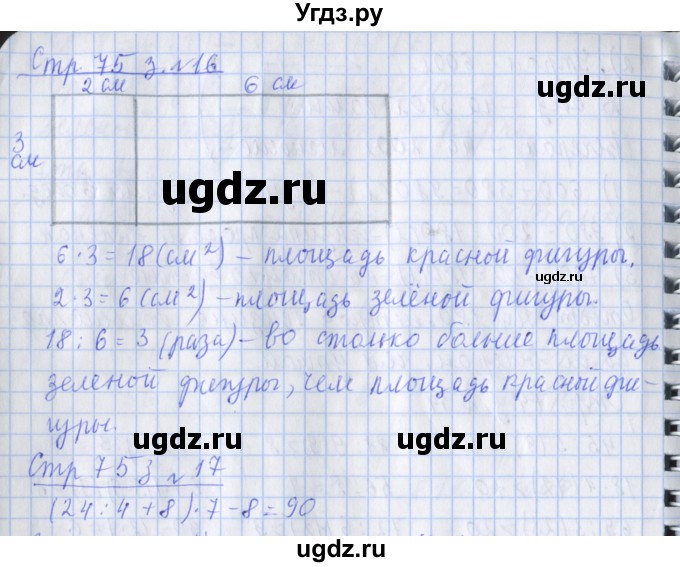 Угдз.ру
Стр. 75 з. №16
2 см 6 см
ugdz.ru
3
см
ugdz.ru
6·3=18(см²) – площадь красной фигуры.
ugdz.ru
2·3=6(см²) – площадь зелёной фигуры.
18:6=3 (раза) – во столько больше площадь
зеленой фигуры, чем площадь красной фи-
гуры.
ugdz.ru ugdz.ru
Стр 75 з №17
(24:4+8)·7–8=90
ugdz.ru